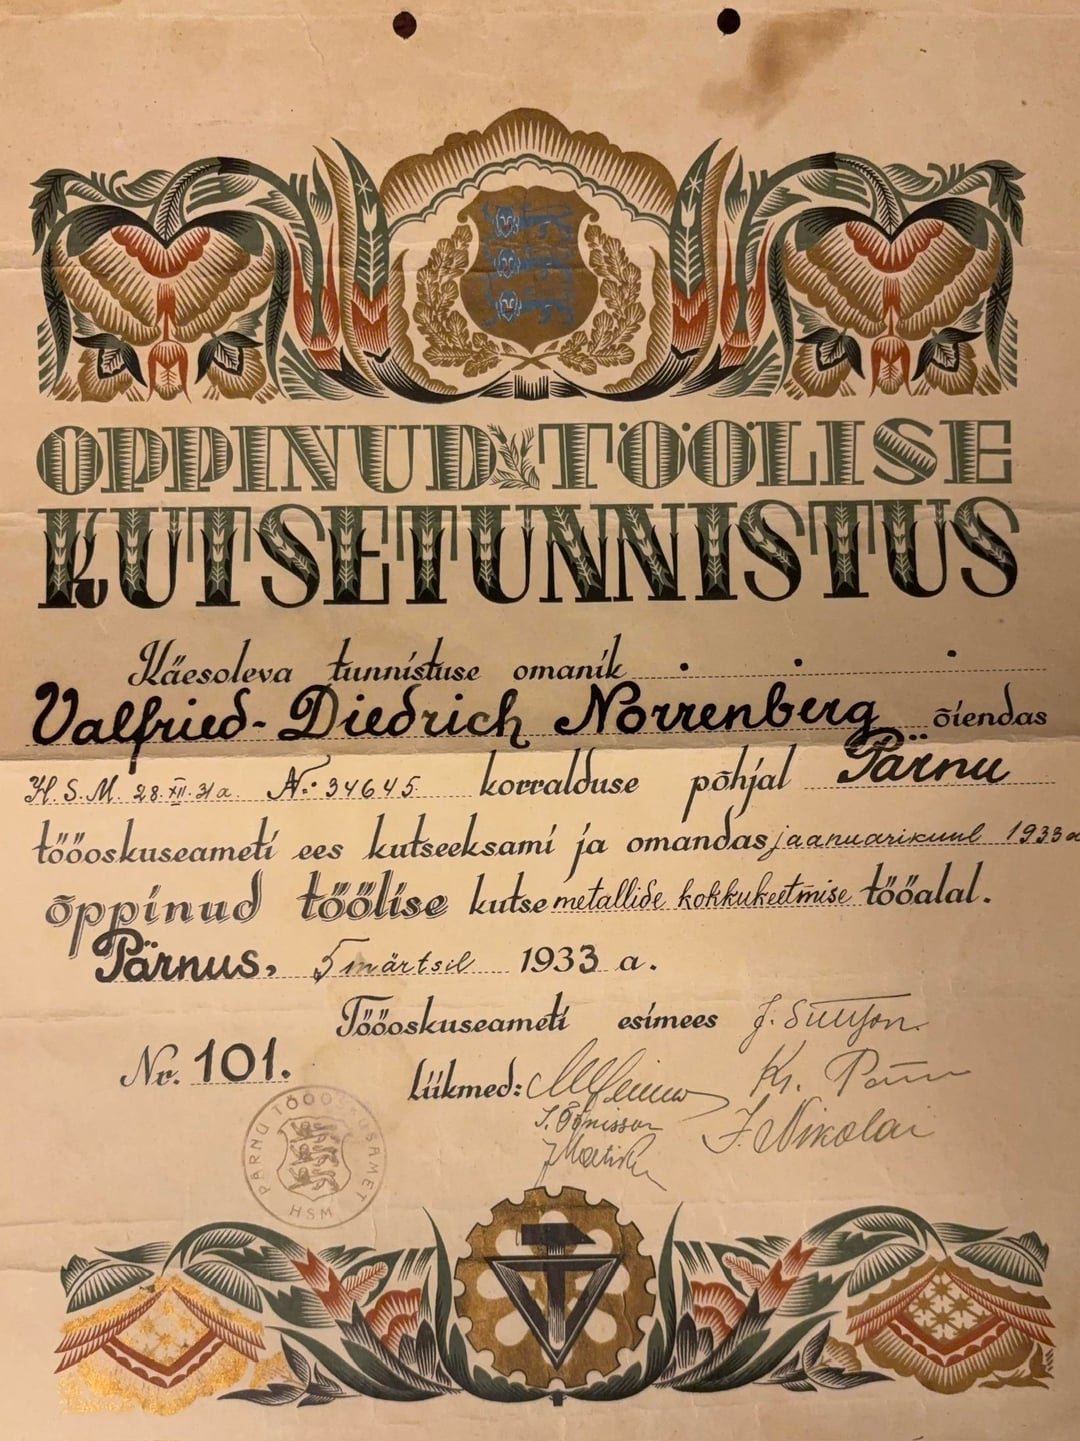 ÕPPINUD TÖÖLISE
KUTSETUNNISTUS
Käesoleva tunnistuse omanik
Valfried-Diedrich Norrenberg õiendas
H.S.M. 28.XII.31a. N: 34645 korralduse põhjal Pärnu
tööoskuseameti ees kutseeksami ja omandas jaanuarikuul 1933 a
õppinud töölise kutse metallide kokkukeetmise tööalal.
Pärnus, 5 märtsil 1933 a.
Tööoskuseameti esimees
Nr. 101.
Liikmed: Kr.
J. Tõnisson J. Nikolai
PÄRNU TÖÖOSKUSAMET
HSM